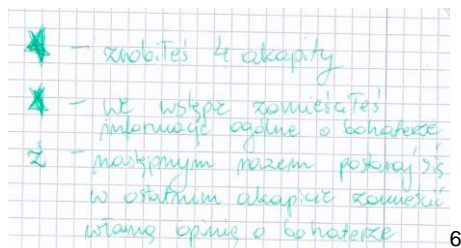 - zrobiłeś 4 akapity
- we wstępie zamieściłeś
informacje ogólne o bohaterze
ż - następnym razem postaraj się
w ostatnim akapicie zamieścić
własną opinię o bohaterze
6